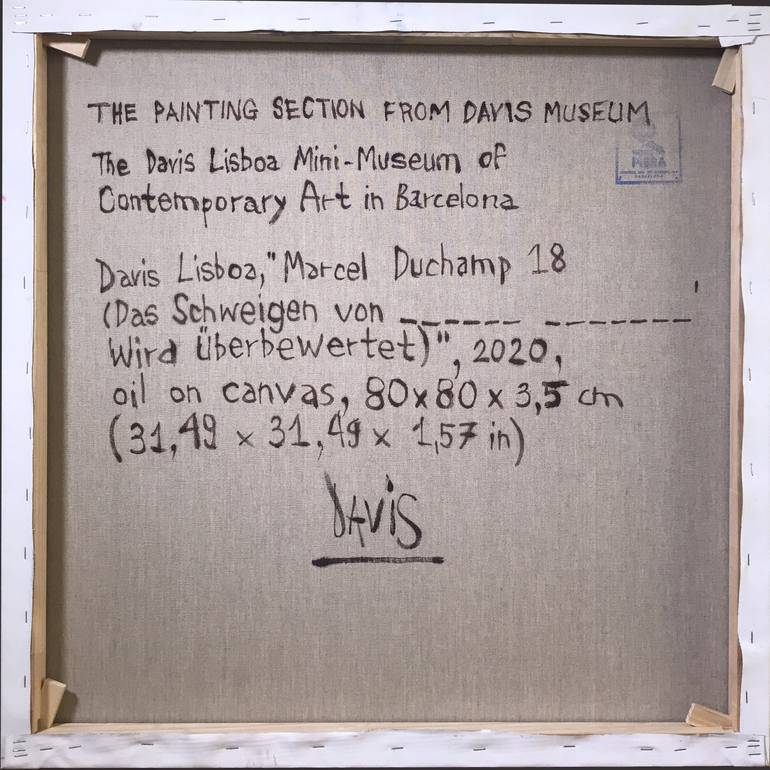 THE PAINTING SECTION FROM DAVIS MUSEUM
The Davis Lisboa Mini-Museum of
Contemporary Art in Barcelona
Davis Lisboa, "Marcel Duchamp 18
(Das Schweigen von ------ -------
Wird überbewertet)", 2020,
oil on canvas, 80x80 x 3,5 cm
(31,49 x 31,49 x 1,57 in)
DAViS
PIERA